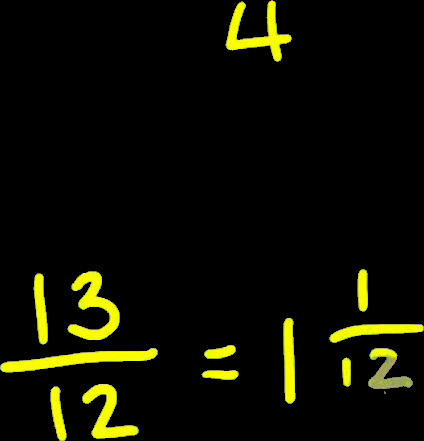 4
13/12 = 1 1/12